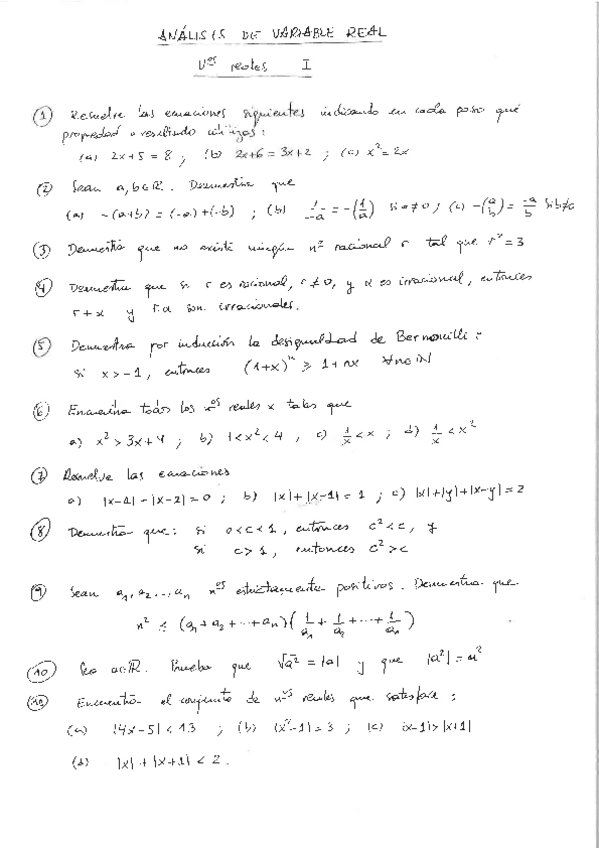 ANÁLISIS DE VARIABLE REAL
Nos reales I
① Resuelve las ecuaciones siguientes indicando en cada paso qué
propiedad o resultado utilizas:
(a) 2x+5=8 ; (b) 2x+6=3x+2 ; (c) x²=2x
② Sean a,b∈ℝ. Demuestra que
(a) -(a+b)=(-a)+(-b) ; (b) 1/-a = -(1/a) si a≠0 ; (c) -(a/b) = -a/b si b≠0
③ Demuestra que no existe ningún nº racional r tal que r²=3
④ Demuestra que si r es racional, r≠0, y x es irracional, entonces
r+x y r.x son irracionales.
⑤ Demuestra por inducción la desigualdad de Bernouilli:
si x>-1, entonces (1+x)ⁿ ≥ 1+nx ∀n∈ℕ
⑥ Encuentra todos los nos reales x tales que
a) x²>3x+4 ; b) 1<x²<4 , c) 1/x<x ; d) 1/x<x²
⑦ Resuelve las ecuaciones
a) |x-1|-|x-2|=0 ; b) |x|+|x-1|=1 ; c) |x|+|y|+|x-y|=2
⑧ Demuestra que: si 0<c<1, entonces c²<c, y
si c>1, entonces c²>c
⑨ Sean a₁,a₂...,aₙ nos estrictamente positivos. Demuestra que
n² ≤ (a₁+a₂+...+aₙ)(1/a₁+1/a₂+...+1/aₙ)
⑩ Sea a∈ℝ. Prueba que √a²=|a| y que |a²|=a²
⑩ Encuentra el conjunto de nos reales que satisface:
(a) |4x-5|<13 ; (b) |x²-1|=3 ; (c) |x-1|>|x+1|
(d) |x|+|x+1|<2.